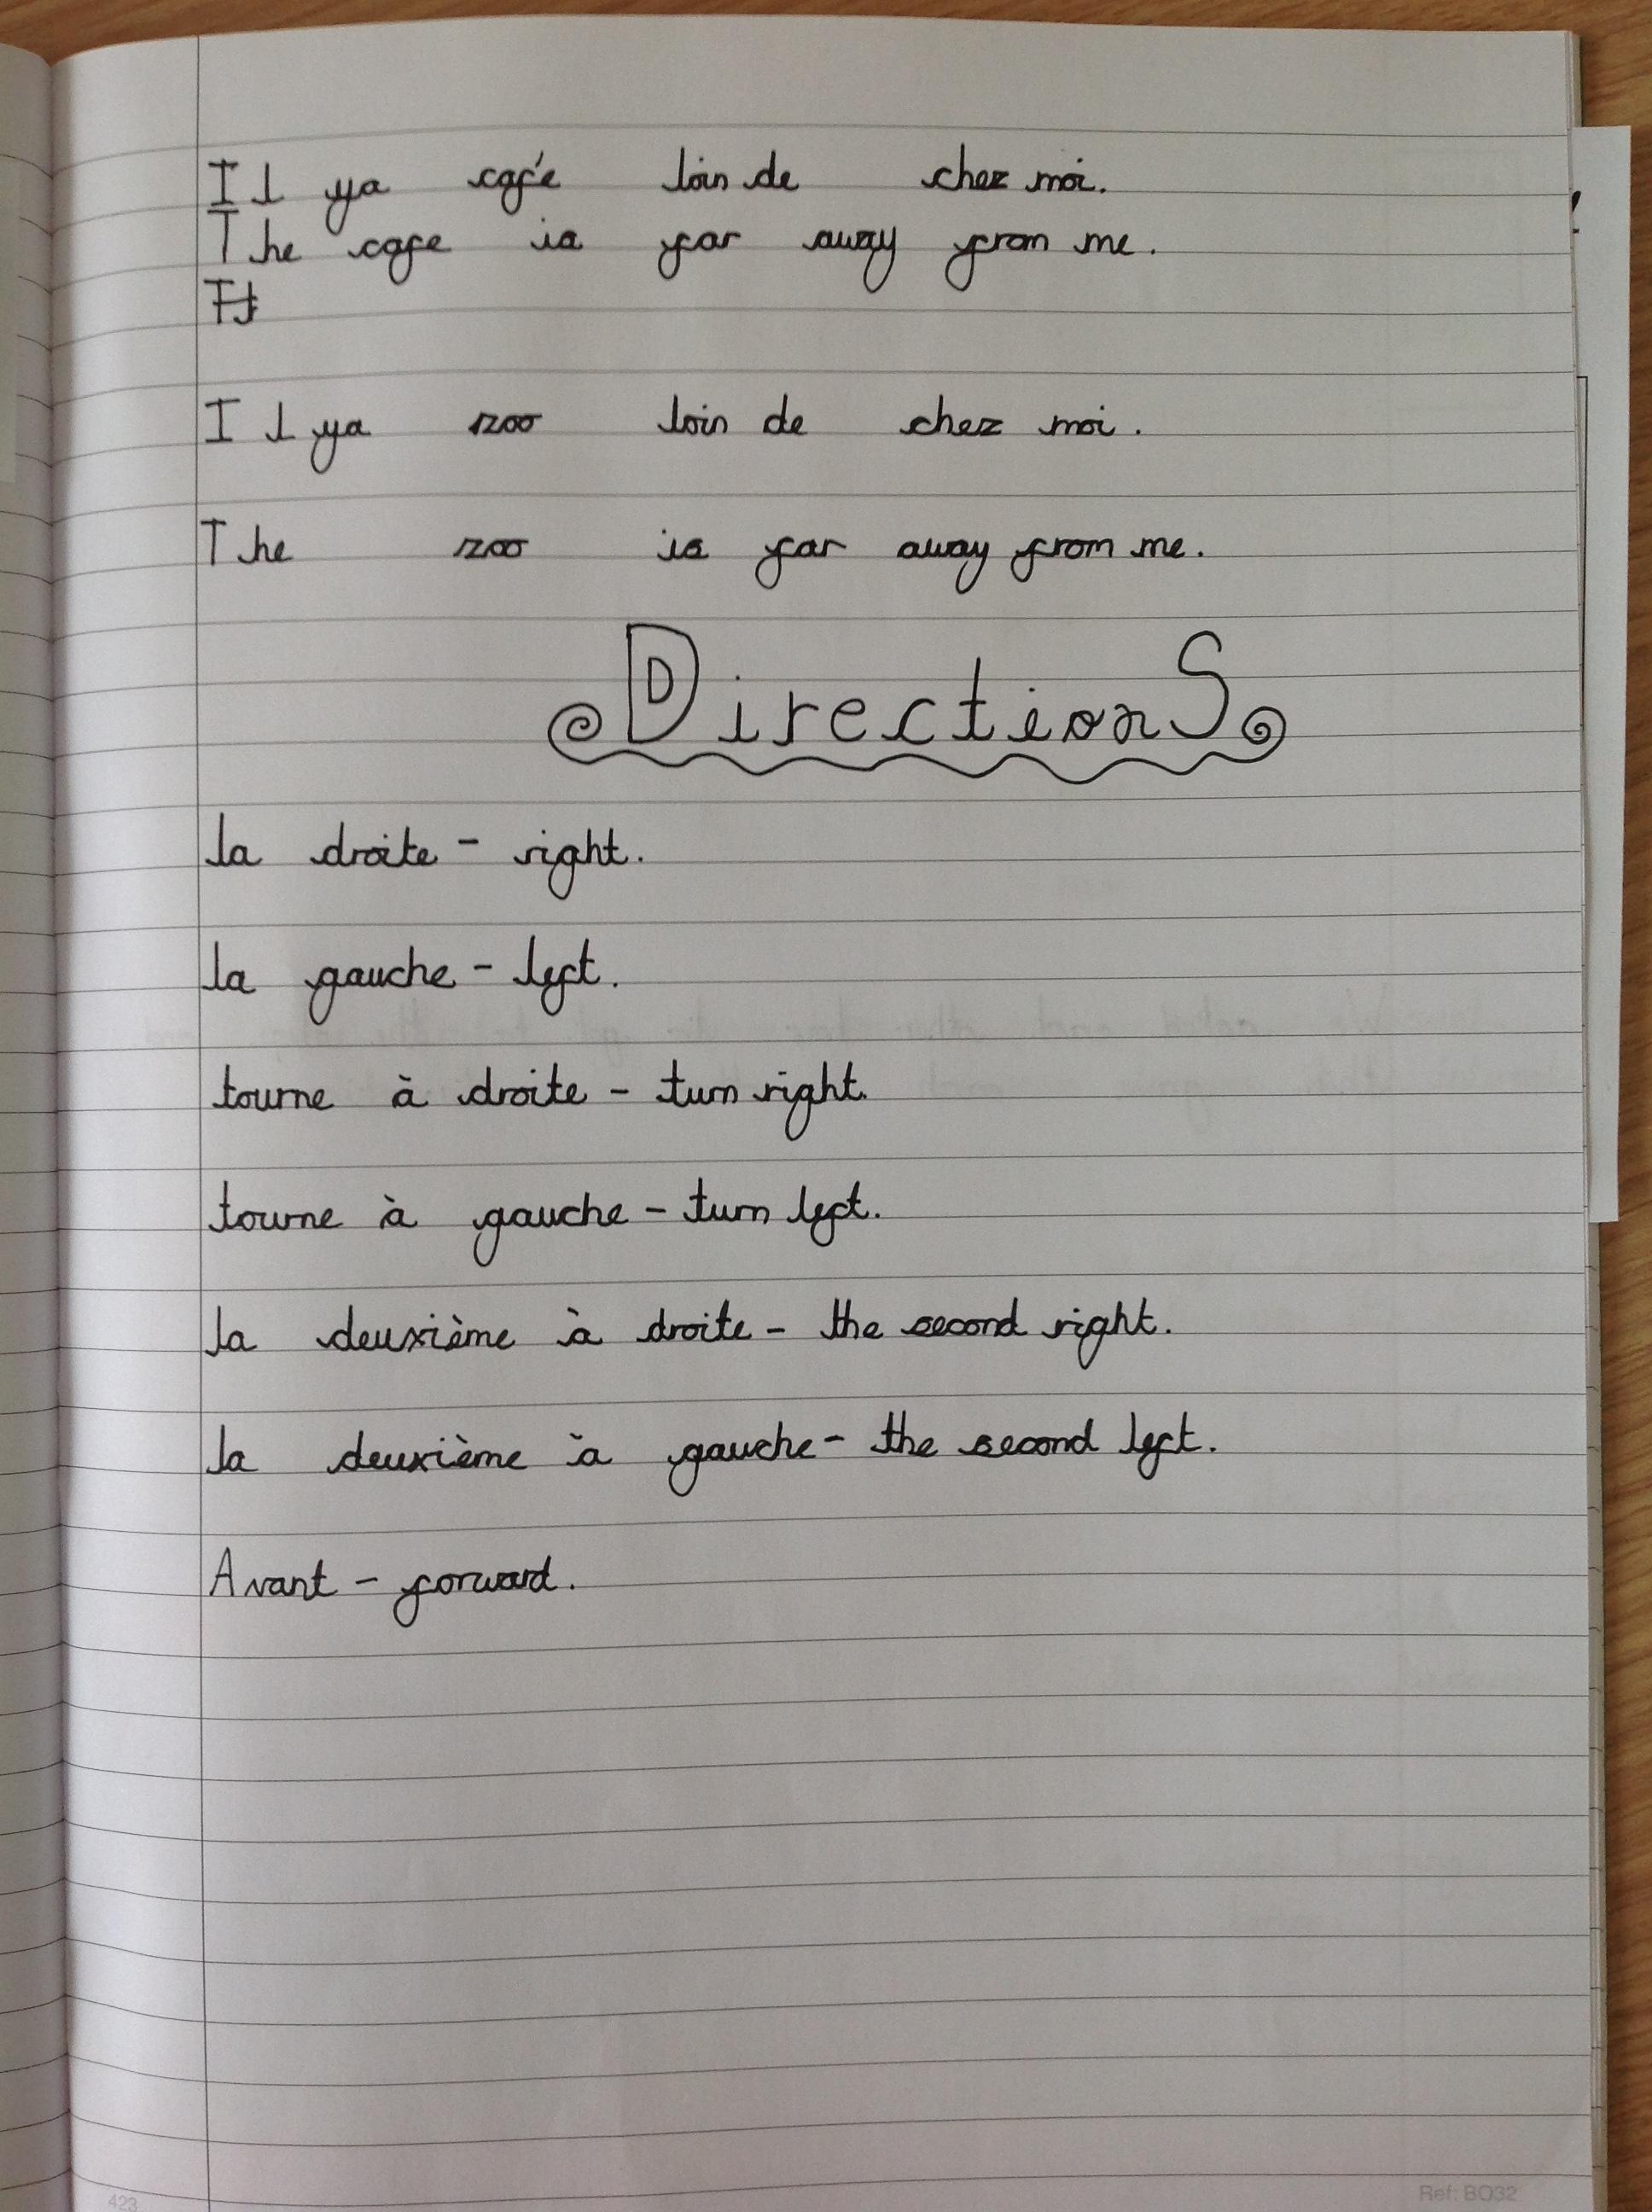 Il ya café loin de chez moi.
The cafe is far away from me.
Il ya zoo loin de chez moi.
The zoo is far away from me.
DirectionS
la droite - right.
la gauche - left.
tourne à droite - turn right.
tourne à gauche - turn left.
la deuxième à droite - the second right.
la deuxième à gauche - the second left.
Avant - forward.
423 Ref: BO32